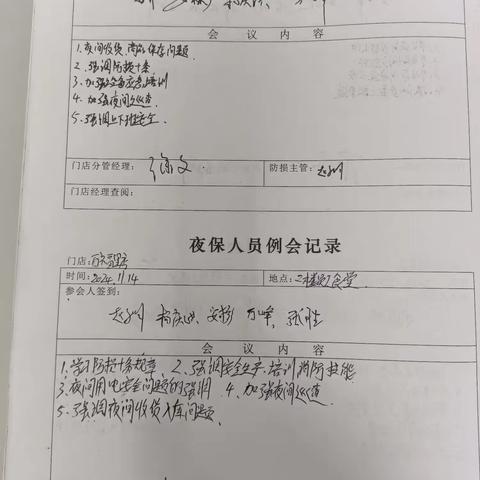 会 议 内 容
1.夜间收货,商品保存问题
2.强调防损十条
3.加强设备应急培训
4.加强夜间巡查
5.强调上下班安全
门店分管经理:
防损主管:
门店经理查阅:
夜保人员例会记录
门店:
时间: 2024.11/14 地点: 食堂
参会人签到:
会 议 内 容
1.学习防损十条规章 2.强调安全生产、培训消防技能
3.夜间用电安全问题的强调 4.加强夜间巡查
5.强调夜间收货入库问题